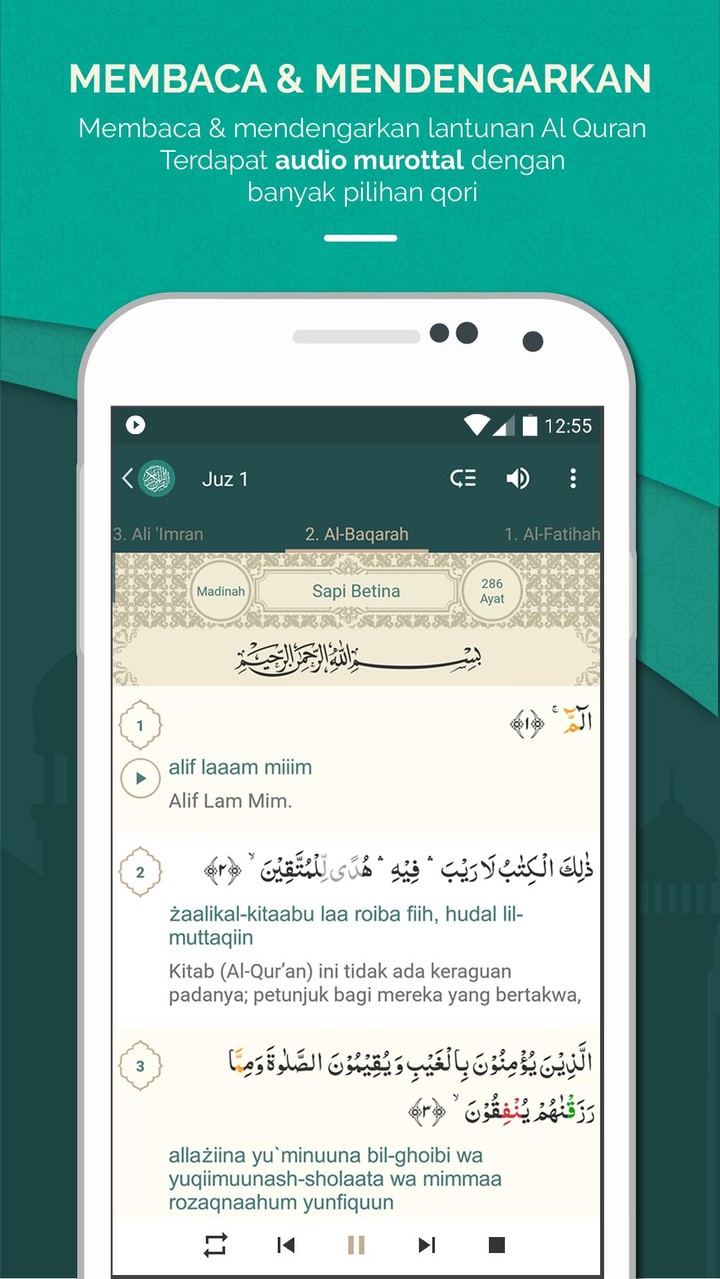 MEMBACA & MENDENGARKAN
Membaca & mendengarkan lantunan Al Quran
Terdapat audio murottal dengan
banyak pilihan qori
12:55
Juz 1
3. Ali 'Imran
2. Al-Baqarah
1. Al-Fatihah
Madinah
Sapi Betina
286
Ayat
بِسْمِ اللّٰهِ الرَّحْمٰنِ الرَّحِيْمِ
1
الۤمّۤ ۚ ﴿١﴾
alif laaam miiim
Alif Lam Mim.
2
ذٰلِكَ الْكِتٰبُ لَا رَيْبَ ۛ فِيْهِ ۛ هُدًى لِّلْمُتَّقِيْنَ ۙ ﴿٢﴾
żaalikal-kitaabu laa roiba fiih, hudal lil-
muttaqiin
Kitab (Al-Qur’an) ini tidak ada keraguan
padanya; petunjuk bagi mereka yang bertakwa,
3
الَّذِيْنَ يُؤْمِنُوْنَ بِالْغَيْبِ وَيُقِيْمُوْنَ الصَّلٰوةَ وَمِمَّا
رَزَقْنٰهُمْ يُنْفِقُوْنَ ۙ ﴿٣﴾
allażiina yu`minuuna bil-ghoibi wa
yuqiimuunash-sholaata wa mimmaa
rozaqnaahum yunfiquun